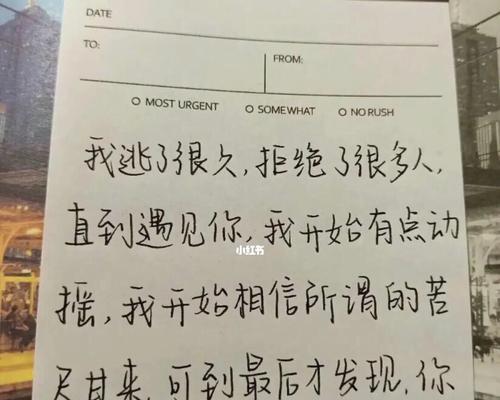 DATE
TO:
FROM:
MOST URGENT
SOMEWHAT
NO RUSH
我逃了很久,拒绝了很多人,
直到遇见你,我开始有点动
小红书
摇,我开始相信所谓的苦
尽甘来,可到最后才发现,你